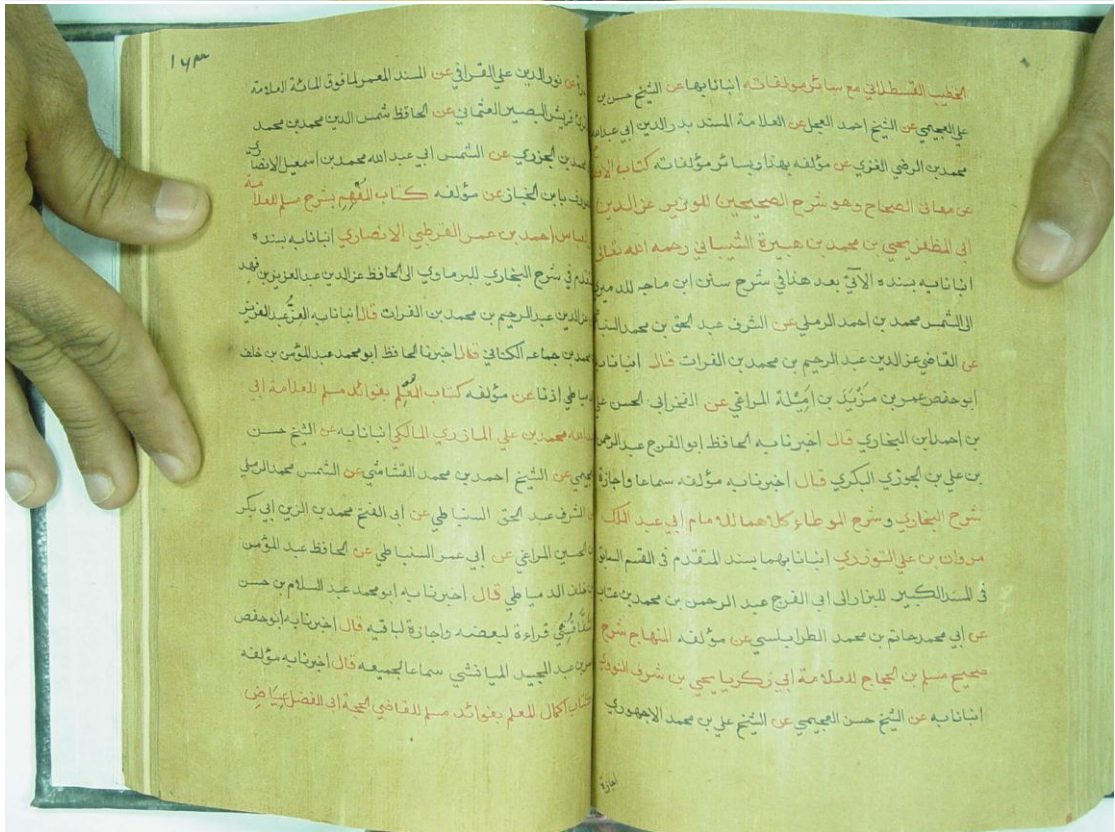 الخطيب القسطلاني مع سائر مؤلفاته انبانا بها عن الشيخ حسن بن
علي العجيمي عن الشيخ احمد العجل عن العلامة المسند بدر الدين ابي عبد الله
محمد بن الرضي الغزي عن مؤلفه بهتا وبسائر مؤلفاته كتاب
عن معاني الصحاح وهو شرح الصحيحين للوزير عز الدين
ابي المظفر يحيى بن محمد بن هبيرة الشيباني رحمه الله تعالى
انبانا به بسنده الآتي بعد هذا في شرح سنن ابن ماجه للدميري
الى الشمس محمد بن احمد الرملي عن الشرف عبد الحق بن محمد
عن القاضي عز الدين عبد الرحيم بن محمد بن الفرات قال انبانا به
ابو حفص عمر بن مزيد بن اميلة المراغي عن الفخر ابي الحسن علي
بن احمد ابن البخاري قال اخبرنا به الحافظ ابو الفرج عبد الرحمن
بن علي بن الجوزي البكري قال اخبرنا به مؤلفه سماعا واجازة
شرح البخاري وشرح الموطاء كلاهما للامام ابي عبد الملك
مروان بن علي التوزري انبانا بهما بسند المتقدم في القسم السابق
في المسند الكبير للبزار الى ابي الفرج عبد الرحمن بن محمد بن عتاب
عن ابي محمد حاتم بن محمد الطرابلسي عن مؤلفه المنهاج شرح
صحيح مسلم بن الحجاج للعلامة ابي زكريا يحيى بن شرف النووي
انبانا به عن الشيخ حسن العجيمي عن الشيخ علي بن محمد الاجهوري
اجازة
١٦٣
عن نور الدين علي القرافي عن المسند المعمر لما فوق المائة العلامة
قريش البصير العثماني عن الحافظ شمس الدين محمد بن محمد
محمد بن الجزري عن الشمس ابي عبد الله محمد بن اسمعيل الانصاري
بابن الخباز عن مؤلفه كتاب المفهم بشرح مسلم للعلامة
العباس احمد بن عمر القرطبي الانصاري انبانا به بسنده
المتقدم في شرح البخاري للبرماوي الى الحافظ عز الدين عبد العزيز بن فهد
عز الدين عبد الرحيم بن محمد بن الفرات قال انبانا به العز عبد العزيز
محمد بن جماعه الكناني قال اخبرنا الحافظ ابو محمد عبد المؤمن بن خلف
الدمياطي اذنا عن مؤلفه كتاب المعلم بفوائد مسلم للعلامة ابي
عبد الله محمد بن علي المازري المالكي انبانا به عن الشيخ حسن
العجيمي عن الشيخ احمد بن محمد القشاشي عن الشمس محمد الرملي
عن الشرف عبد الحق السنباطي عن ابي الفتح محمد بن الزين ابي بكر
بن الحسين المراغي عن ابي عمر السنباطي عن الحافظ عبد المؤمن
بن خلف الدمياطي قال اخبرنا به ابو محمد عبد السلام بن حسن
قراءة لبعضه واجازة لباقيه قال اخبرنا به ابو حفص
عمر بن عبد المجيد الميانشي سماعا لجميعه قال اخبرنا به مؤلفه
كتاب اكمال المعلم بفوائد مسلم للقاضي الحجة ابي الفضل عياض